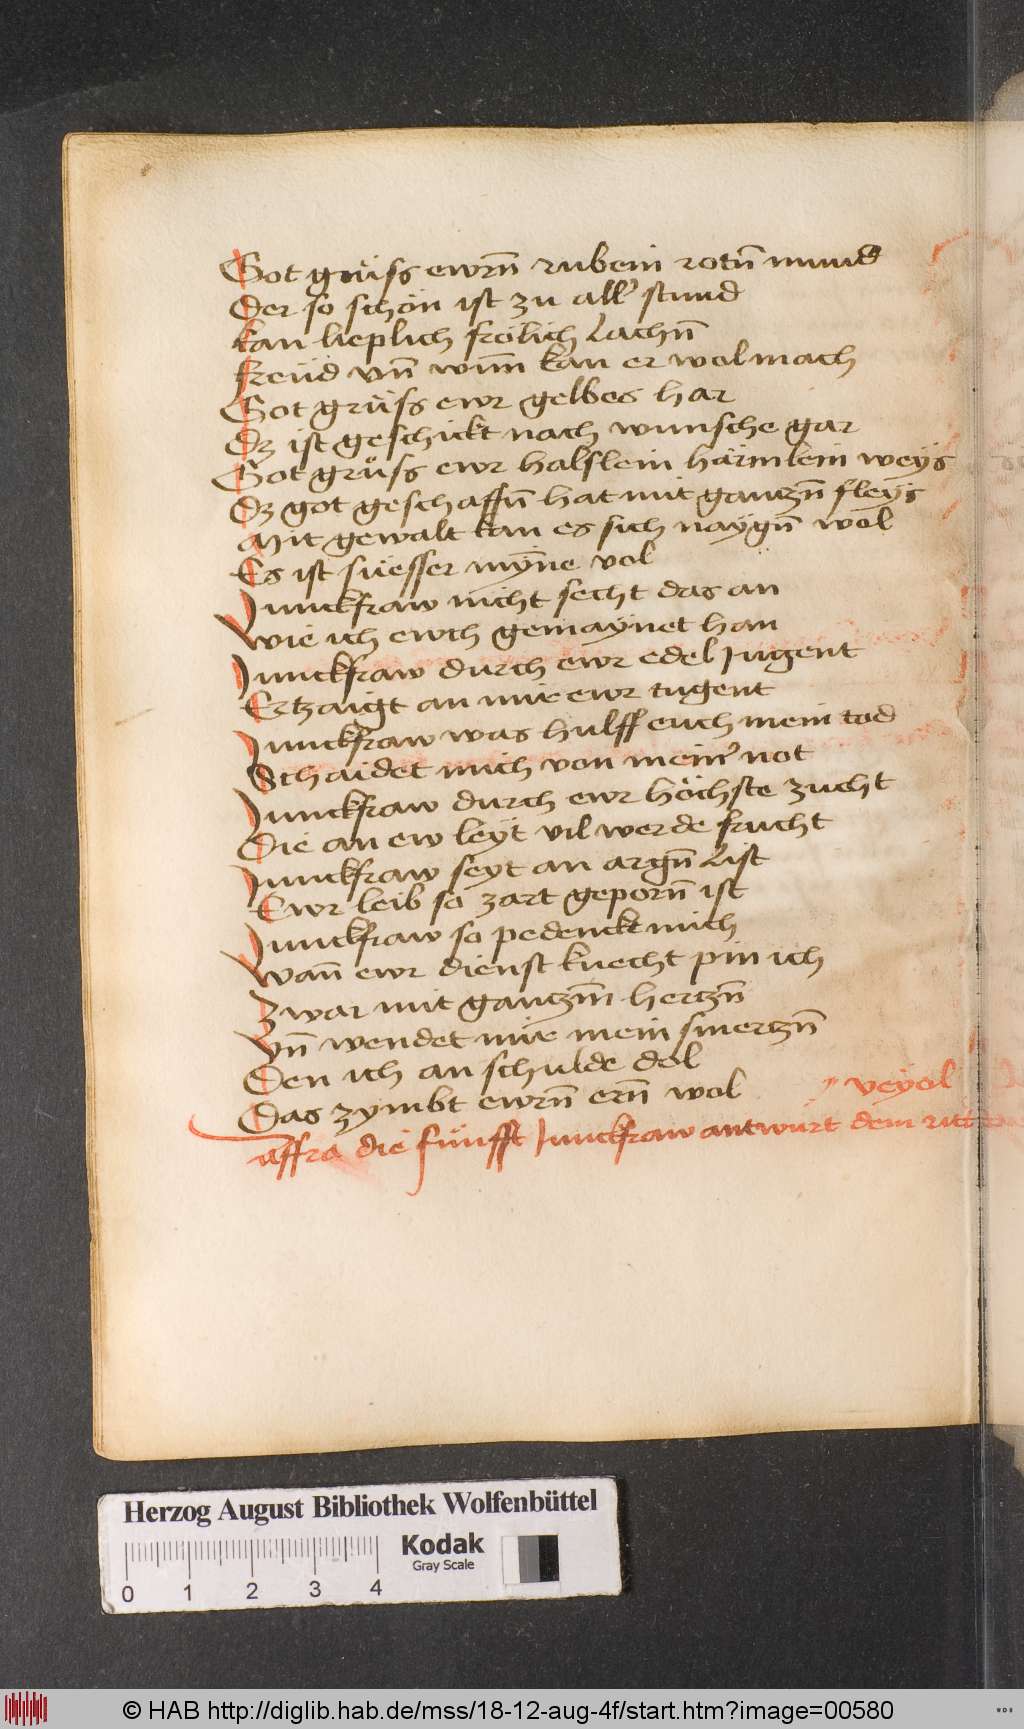 Got grüss ewrn̄ rubein rotn̄ mund
Der so schön ist zu all' stund
kan lieplich frölich Lachn̄
freüd vn̄ wun̄ kan er wol mach
Got grüss ewr gelbes har
Dz ist geschickt nach wunsche gar
Got grüss ewr halslein härmlein weÿs
Dz got geschaffn̄ hat mit gantzn̄ fleÿs
Mit gewalt kan es sich naÿgn̄ wol
Es ist süesser mÿn̄e vol
Junckfraw nicht secht das an
wie ich ewch gemaÿnet han
Junckfraw durch ewr edel Jugent
Ertzaigt an mir ewr tugent
Junckfraw was hulff euch mein tod
Schaidet mich von mein' not
Junckfraw durch ewr höchste zucht
Die an ew leÿt vil werde frucht
Junckfraw seyt an argn̄ List
Ewr leib so zart geporn̄ ist
Junckfraw so pedenckt mich
wan̄ ewr dienst knecht pin ich
Zwar mit gantzm̄ hertzn̄
Vn̄ wendet mir mein smertzn̄
Den ich an schulde dol
Das zymbt ewrn̄ ern̄ wol
veyol
affra die fünfft Junckfraw antwurt dem ritt
Herzog August Bibliothek Wolfenbüttel
Kodak
Gray Scale
0 1 2 3 4
© HAB http://diglib.hab.de/mss/18-12-aug-4f/start.htm?image=00580